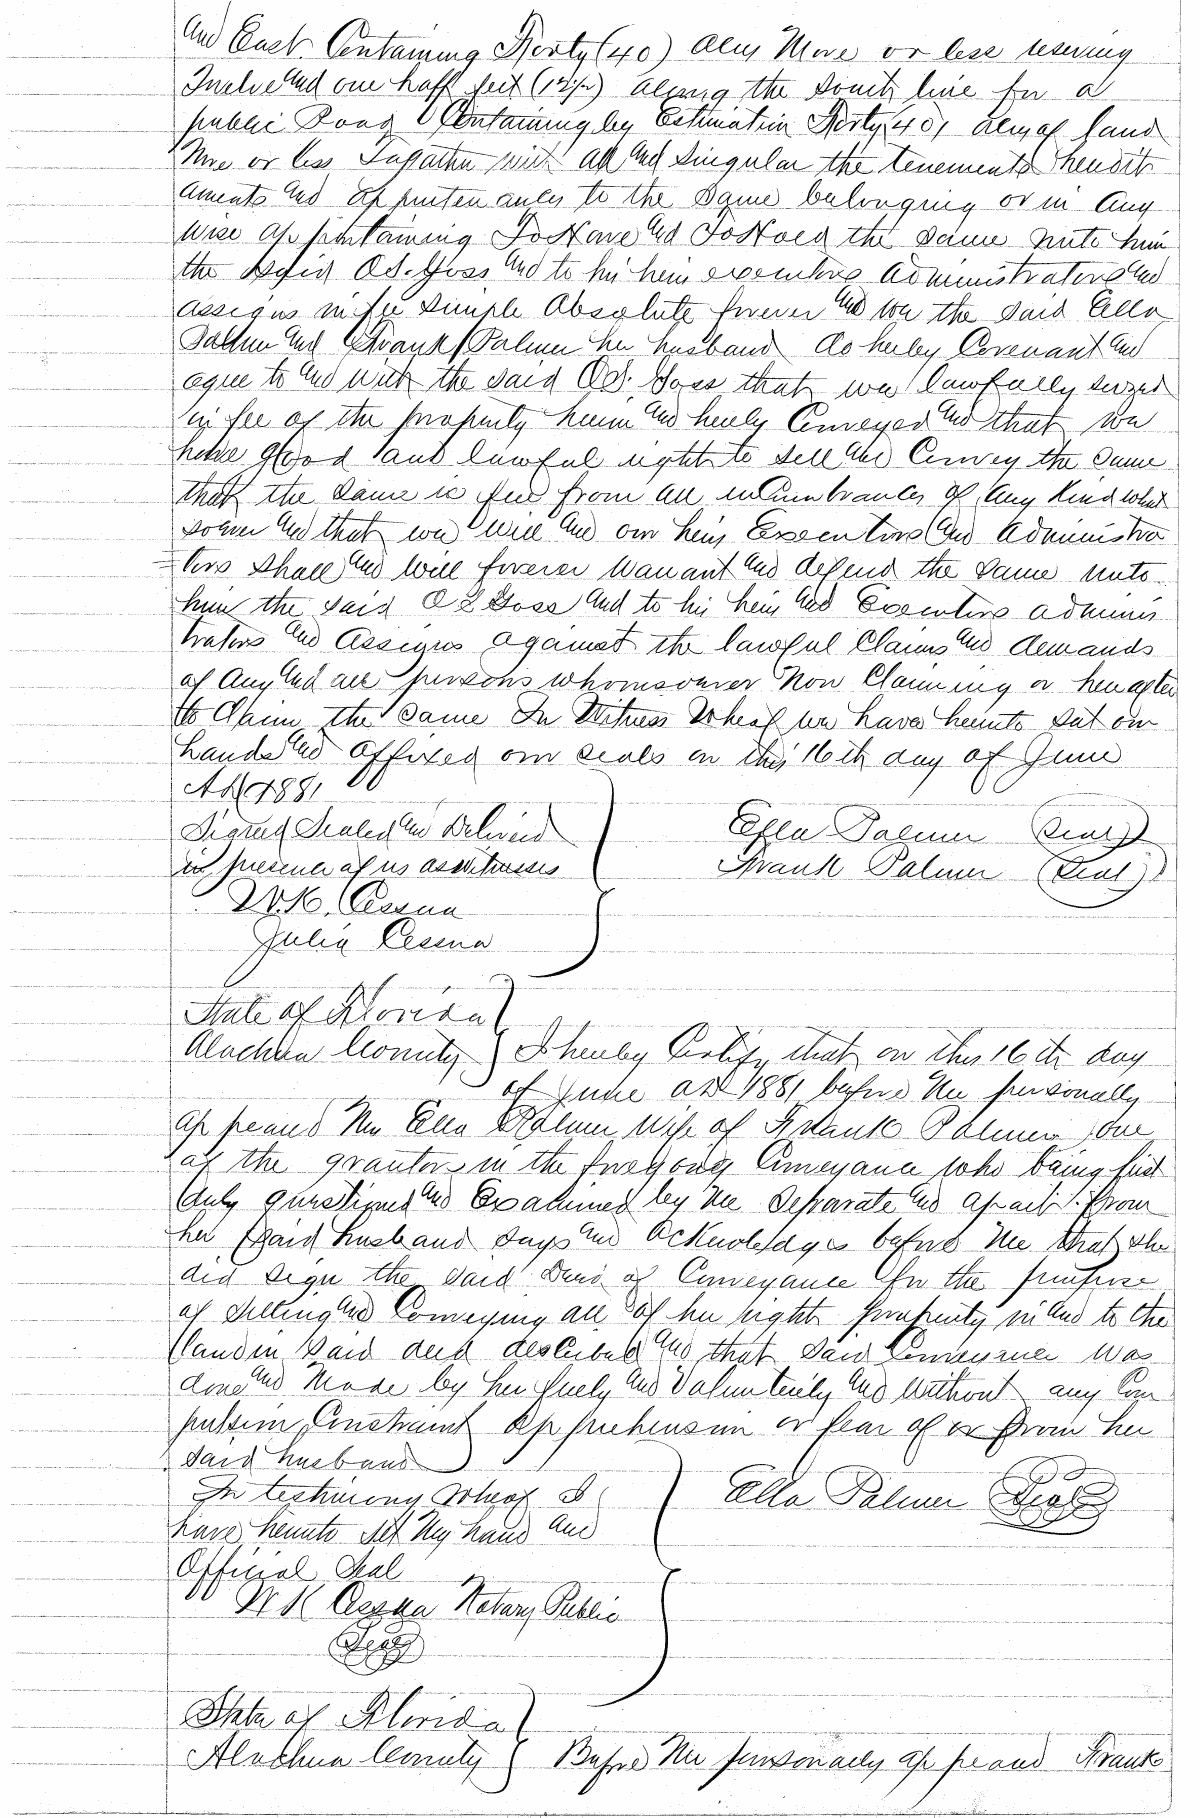 and East Containing Forty (40) acres More or less reserving
Twelve and one half feet (12½) along the South line for a
public Road Containing by Estimation Forty (40) acres of land
More or less Togather with all and singular the tenements heredit
aments and appurtenances to the same belonging or in any
wise appertaining To Have and To Hold the same unto him
the said O.S. Goss and to his heirs executors administrators and
assigns in fee simple absolute forever and we the said Ella
Palmer and Frank Palmer her husband do hereby Covenant and
agree to and with the said O.S. Goss that we lawfully seized
in fee of the property herein and hereby Conveyed and that we
have good and lawful right to sell and Convey the same
that the same is free from all incumbrances of any kind what
soever and that we will and our heirs Executors and administra
tors shall and will forever warrant and defend the same unto
him the said O S Goss and to his heirs and Executors adminis
trators and assigns against the lawful Claims and demands
of any and all persons whomsoever Now Claiming or hereafter
to Claim the same In Witness Whereof we have hereunto set our
hands and affixed our seals on this 16th day of June
AD 1881
Signed Sealed and Delivered
in presence of us as witnesses
Ella Palmer (Seal)
Frank Palmer (Seal)
W.K. Cessna
Julia Cessna
State of Florida
Alachua County I hereby Certify that on this 16th day
of June AD 1881 before Me personally
appeared Mrs Ella Palmer Wife of Frank Palmer one
of the grantors in the foregoing Conveyance who being first
duly questioned and Examined by Me separate and apart from
her said husband says and acknowledges before Me that she
did sign the said Deed of Conveyance for the purpose
of selling and Conveying all of her right property in and to the
land in said deed described and that said Conveyance was
done and Made by her freely and Voluntarily and without any Com
pulsion Constraint apprehension or fear of or from her
said husband
In testimony Whereof I
have hereunto set My hand and
Official Seal
Ella Palmer (Seal)
W K Cessna Notary Public
(Seal)
State of Florida
Alachua County Before Me personally appeared Frank